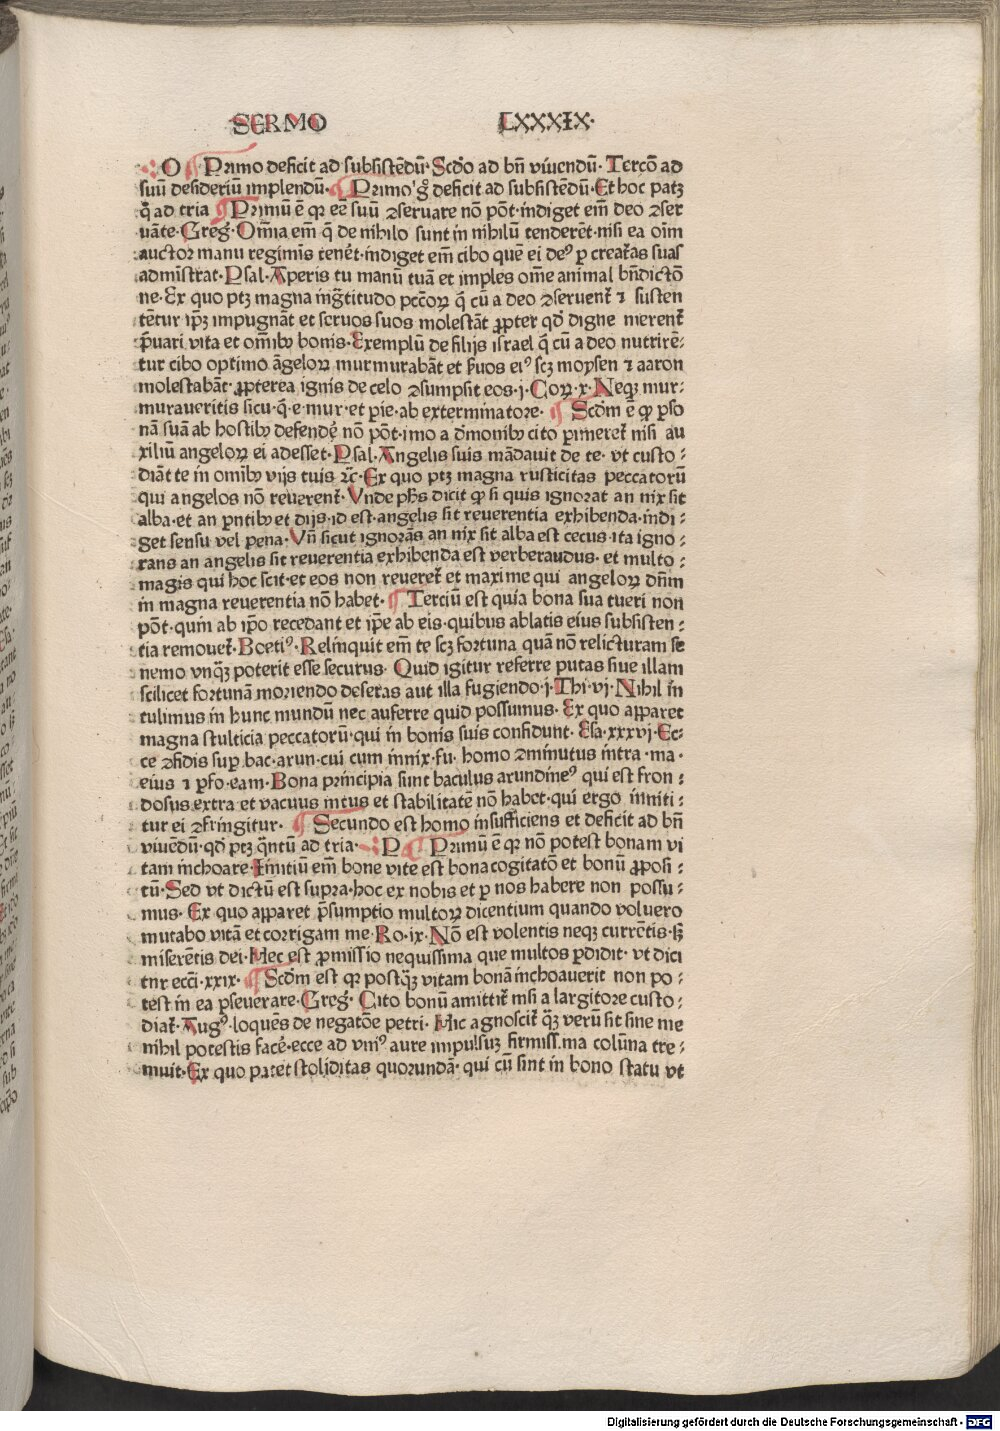 SERMO LXXXIX·
·:· O ¶ Primo deficit ad subsistēdū· Scd̄o ad bn̄ viuendū· Tercō ad
suū desideriū implendū· ¶ Primo gͦ deficit ad subsistēdū· Et hoc patꝫ
ꝙ ad tria ¶ Primū ē qꝛ eē suū ꝯseruare nō pōt· indiget em̄ deo ꝯser
uāte· Greg̉· Om̄ia em̄ q̄ de nihilo sunt in nihilū tenderēt· nisi ea oīm
auctor manu regimīs tenēt· indiget em̄ cibo quē ei deꝰ ꝑ creat̄as suas
admīstrat· Psal· Aperis tu manū tuā et imples om̄e animal bn̄dictō
ne· Ex quo ptꝫ magna īgͣtitudo pctōꝝ q̄ cū a deo ꝯseruent̄ ⁊ susten
tētur ip̄ꝫ impugnāt et seruos suos molestāt ꝓpter qd̄ digne merent̄
p̄uari vita et om̄ibꝰ bonis· Exemplū de filijs israel q̄ cū a deo nutrirē-
tur cibo optimo āgeloꝝ murmurabāt et ẜuos eiꝰ scꝫ moysen ⁊ aaron
molestabāt· ꝓpterea ignis de celo ꝯsumpsit eos· j· Coꝝ· x· Neqꝫ mur-
muraueritis sicu· q̄· e· mur· et ꝑie· ab exterminatore· ¶ Scd̄m ē qꝙ ꝑso
nā suā ab hostibꝰ defendē nō pōt· imo a d̄monibꝰ cito ꝑimeret̄ nisi au
xiliū angeloꝝ ei adesset· Psal· Angelis suis mādauit de te· vt custo-
diāt te in om̄ibꝰ vijs tuis ⁊c̄· Ex quo ptꝫ magna rusticitas peccatorū
qui angelos nō reuerent̄· Vnde ph̄s dicit ꝙ si quis ignorat an nix sit
alba· et an ꝑntibꝰ et dijs· id est· angelis sit reuerentia exhibenda· indi-
get sensu vel pena· Vn̄ sicut ignorās an nix sit alba est cecus· ita igno-
rans an angelis sit reuerentia exhibenda est verberaudus· et multo-
magis qui hoc scit· et eos non reueret̄ et maxime qui angeloꝝ dn̄m
in magna reuerentia nō habet· ¶ Terciū est quia bona sua tueri non
pōt· quin ab ip̄o recedant et ip̄e ab eis· quibus ablatis eius subsisten-
tia remouet̄· Boetiꝰ· Relinquit em̄ te scꝫ fortuna quā nō relicturam se
nemo vnqͣꝫ poterit esse securus· Quid igitur referre putas siue illam
scilicet fortunā moriendo deseras aut illa fugiendo· j· Thi· vj· Nihil in
tulimus in hunc mundū nec auferre quid possumus· Ex quo apparet
magna stulticia peccatorū· qui in bonis suis confidunt· Esa· xxxvj· Ec-
ce ꝯfidis suꝑ bac· arun· cui cum innix· fu· homo ꝯminutus intra· ma·
eius ⁊ ꝑfo· eam· Bona principia sunt baculus arundineꝰ qui est fron-
dosus extra et vacuus intus et stabilitatē nō habet· qui ergo inniti-
tur ei ꝯfringitur· ¶ Secundo est homo insufficiens et deficit ad bn̄
viuēdū· qd̄ ptꝫ qͣntū ad tria· ·:· P ¶ Primū ē qꝛ nō potest bonam vi
tam inchoare· Inītiū em̄ bone vite est bona cogitatō et bonū ꝓposi-
tū· Sed vt dictū est supra· hoc ex nobis et ꝑ nos habere non possu-
mus· Ex quo apparet p̄sumptio multoꝝ dicentium quando voluero
mutabo vitā et corrigam me· Ro· ix· Nō est volentis neqꝫ currētis· sꝫ
miserētis dei· Hec est ꝓmissio nequissima que multos ꝑdidit· vt dici
tnr ecc̄i· xxix· ¶ Scd̄m est qꝛ postqͣꝫ vitam bonā inchoauerit non po-
test in ea ꝑseuerare· Greg̉· Cito bonū amittit̄ nisi a largitore custo-
diat̄· Augꝰ· loquēs de negatōe petri· Hic agnoscit̄ qͣꝫ verū sit sine me
nihil potestis facē· ecce ad vniꝰ aure impulsuꝫ firmiss· ma colūna tre-
muit· Ex quo patet stoliditas quorundā· qui cū sint in bono statu vt
Digitalisierung gefördert durch die Deutsche Forschungsgemeinschaft - DFG